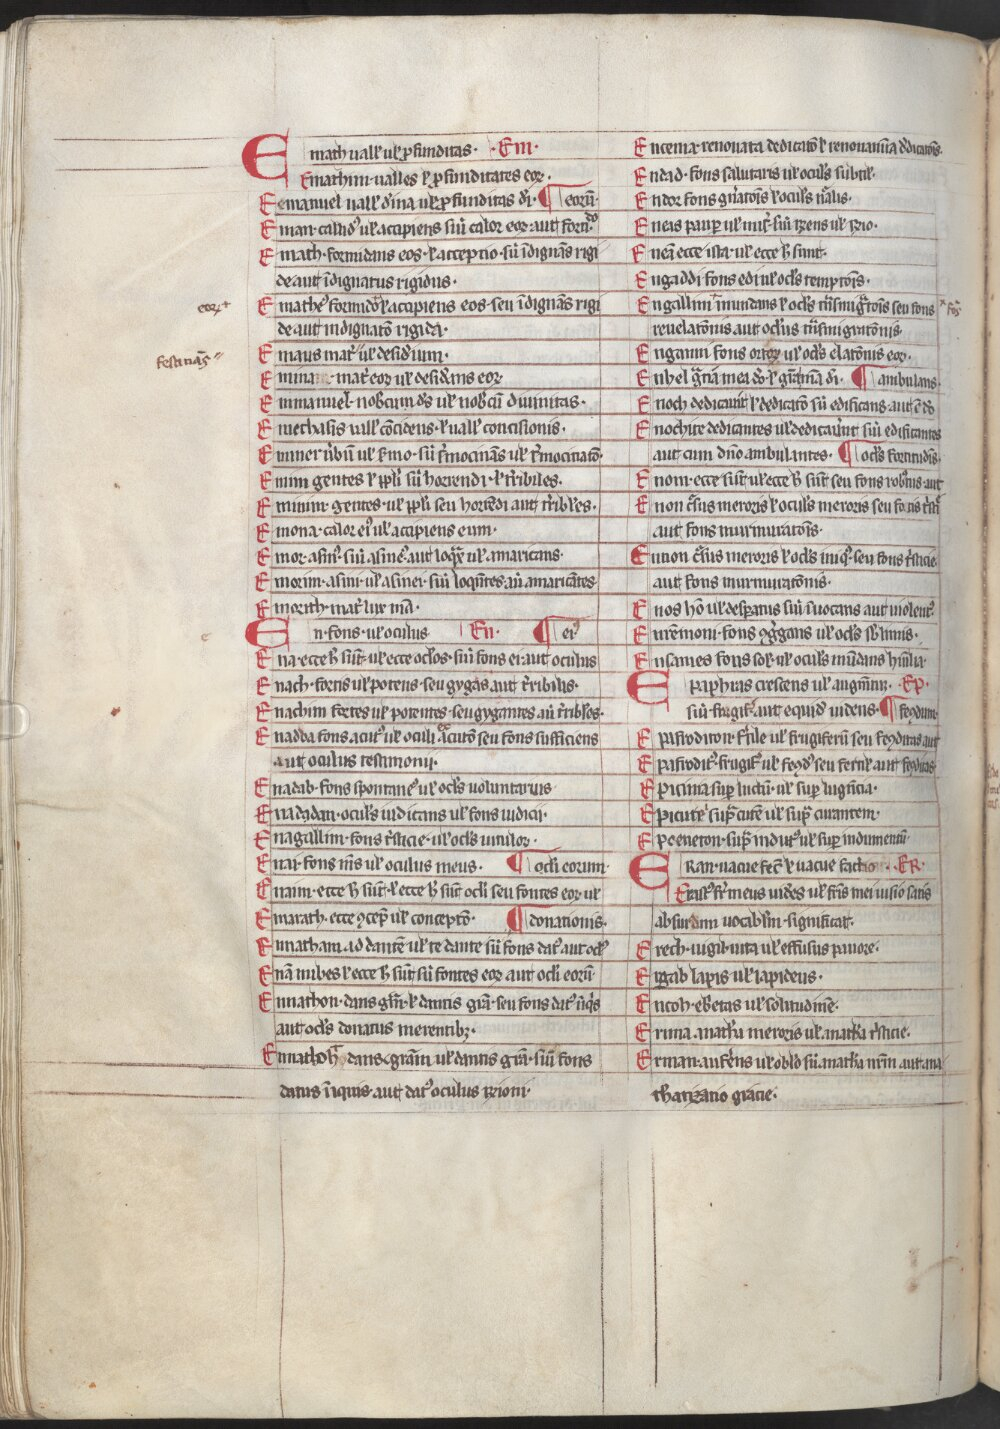 Emath uall' ul' ꝓfunditas · Em ·
Emathim · ualles ł ꝓfunditates eoꝝ ·
Emanuel uall' diuina ul' ꝓfunditas dī · ¶ eorū
Eman · calid' ul' accipiens siū calor eoꝝ aut form
Emath · formidans eos · ł acceptio · sū īdignās rigi
de aut īdignatus rigidus ·
Emathe' ł accipiens eos · seu īdignās rigi
de aut indignatō rigida ·
eoꝝ +
Emaus mat' ul' desid'ium ·
festinās
Emina mat' eoꝝ ul' desid'ans eoꝝ
Emmanuel · nobcum ds ul' nobcū diuinitas ·
Emethasis uall' cōcidens · ł uall' concisionis ·
Emmer ul' s'mo · siū s'mocināns ul' s'mocinatō
Emim gentes ł ppli siū horrendi · ł t'ribiles ·
Eminim · gentes · ul' ppli seu horrēdi aut t'ribiles ·
Emona · calor ei' ul' accipiens eum ·
Emor · asin' · siū asine' · aut loq̄x ul' amaricans ·
Emorim · asini · ul' asinei · siū loquītes · aū amaricātes
Emorith · mat' lux mā ·
En · fons · ul' oculus En · ¶ ei'
Ena · ecce h sūt · ul' ecce oc'los · siū fons ei · aut oculus
Enach · fortis ul' potens · seu gygās aut t'ribilis ·
Enachim fortes ul' potentes · seu gygantes aū t'ribiles ·
Enadda fons acut' ul' oculi acutō seu fons sufficiens
aut oculus testimonii ·
Enadab · fons spontane' ul' oc'ls voluntarius
Enadadan · oculs iudicans ul' fons iudicii ·
Enagallim · fons t'sticie · ul' oc'ls uitulor ·
Enar · fons mīs ul' oculus meus · ¶ oc'li eorum
Enaim · ecce h sūt · ł ecce h sūt oc'li seu fontes eoꝝ ul'
Enarath · ecce 9cep' ul' conceptō · ¶ donationis ·
Enatham · ad dantē ul' te dante siū fons dat' aut oc'l'
Enā nubes ł ecce h sūt siū fontes eoꝝ aut oc'li eorū
Enathon · dans grā · ł dantis grā · seu fons dat' nīqs
aut oc'ls donatus merentibꝫ ·
Enathoh dans grām ul' dantis grā · siū fons
datus īniquis · aut dat' oculus irrioni ·
Encenia · renouata dedicatō ł renouantīa dedicatōis ·
Endad · fons salutaris ul' oculs subtil' ·
Endor fons gn'atōis ł oculs n'alis ·
Eneas paup' ul' mis' · siū irrens ul' irrio ·
Eneā ecce ista · ul' ecce h sunt ·
Engaddi fons edi ul' oc'ls temptōis ·
Engallim īnundans ł oc'ls t'nsmigratōis seu fons
× fōs
reuelatōnis aut oc'lus t'nsmigratōnis ·
Enganni fons ortoꝝ ul' oc'ls elatōnis eoꝝ ·
Enhel grā mea dō · ł grāmā dī · ¶ ambulans ·
Enoch dedicauit ł dedicatō siū edificans · aut c dō
Enochite dedicantes ul' dedicauīt siū edificantes
aut cum dn̄o ambulantes · ¶ oc'ls fortitudīs ·
Enom · ecce sūt ul' ecce h sūt seu fons robust' aut
Enon meroris ł oculs meroris seu fons
aut fons murmuratōis ·
Ennon meroris ł oc'ls iniq' · seu fons t'sticie
aut fons murmuratōnis ·
Enos hō ul' desp'atus siū s'uocans aut uiolent' ·
Enremoni · fons 9g'gans ul' oc'ls s'blimis ·
Ensames fons sol' · ul' oculs mūdans
Epaphras crescens ul' augm̄tū · Ep ·
siū frugif' · aut equid' uidens · ¶ feydum
Epafroditon · f'tile ul' frugiferū seu feyditas aut
Epafrodit' · frugif' ul' feyd' seu fertil' aut feyditas
Epicinia sup' luctū · ul' sup' lugticia ·
Epicute' sup' cutē ul' sup' curantem ·
Epceneton · sup' indut' ul' sup' indumentū
Eran · uacue fec' ł uacue factio · ER ·
Erast' fr' meus uidēs ul' fr'is mei uisio satis
absurdum uocablm significat ·
Erech · uigil' iuta ul' effusus pauore ·
Ergab lapis ul' lapideus ·
Ericoh · ebetas ul' solitudinē ·
Erima · anathā meroris ul' anatha t'sticie ·
Erman · auferens ul' obl'o siū anathā nrm̄ aut ana
thatizatio gracie ·